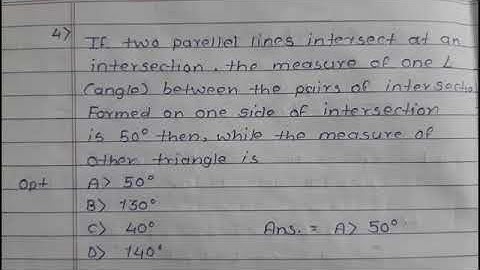 4> If two parellel lines intersect at an
intersection, the measure of one L
(angle) between the pairs of intersectio
Formed on one side of intersection
is 50° then, while the measure of
other triangle is
opt A> 50°
B> 130°
C> 40° Ans. = A> 50°
D> 140°